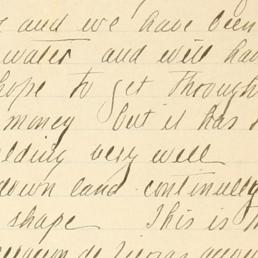 and we have been
water and will hav
hope to get through
money but it has
lding very well
down land continually
shape This is th